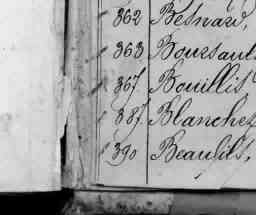 362 Besnard,
363 Boursault
367. Bouillis,
387. Blanches
390 Beaufils,